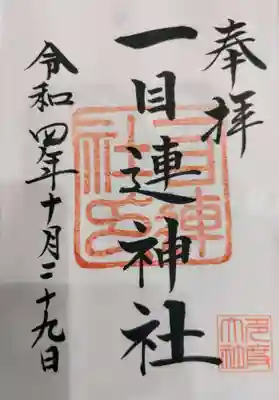 奉拝
一目連神社
令和四年十月二十九日
一目連
社印
多度
大社